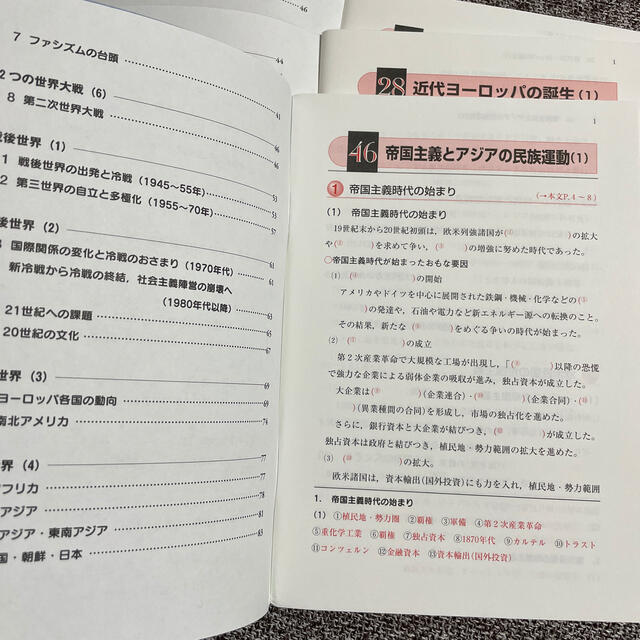 7 ファシズムの台頭
46
44
2つの世界大戦 (6)
8 第二次世界大戦
41
後世界 (1)
1 戦後世界の出発と冷戦 (1945〜55年)
53
2 第三世界の自立と多極化 (1955〜70年)
57
後世界 (2)
国際関係の変化と冷戦のおさまり (1970年代)
61
新冷戦から冷戦の終結, 社会主義陣営の崩壊へ
(1980年代以降)
61
21世紀への課題
65
20世紀の文化
67
世界 (3)
69
ヨーロッパ各国の動向
69
南北アメリカ
74
界 (4)
77
フリカ
77
アジア
78
アジア・東南アジア
81
国・朝鮮・日本
83
1
28 近代ヨーロッパの誕生 (1)
1
46 帝国主義とアジアの民族運動 (1)
1 帝国主義時代の始まり
(→本文P. 4〜8)
(1) 帝国主義時代の始まり
19世紀末から20世紀初頭は, 欧米列強諸国が(① )の拡大
や(② )を求めて争い, (③ )の増強に努めた時代であった。
○帝国主義時代が始まったおもな要因
(1) (④ )の開始
アメリカやドイツを中心に展開された鉄鋼・機械・化学などの(⑤
)の発達や, 石油や電力など新エネルギー源への転換のこと。
その結果, 新たな(⑥ )をめぐる争いの時代が始まった。
(2) (⑦ )の成立
第2次産業革命で大規模な工場が出現し, 「(⑧ )以降の恐慌
で強力な企業による弱体企業の吸収が進み, 独占資本が成立した。
大企業は(⑨ )(企業連合)・(⑩ )(企業合同)・(⑪
)(異業種間の合同)を形成し, 市場の独占化を進めた。
さらに, 銀行資本と大企業が結びつき, (⑫ )が成立した。
独占資本は政府と結びつき, 植民地・勢力範囲の拡大を進めた。
(3) (⑬ )の拡大。
欧米諸国は, 資本輸出(国外投資)にも力を入れ, 植民地・勢力範囲
1. 帝国主義時代の始まり
(1) ①植民地・勢力圏 ②覇権 ③軍備 ④第2次産業革命
⑤重化学工業 ⑥覇権 ⑦独占資本 ⑧1870年代 ⑨カルテル ⑩トラスト
⑪コンツェルン ⑫金融資本 ⑬資本輸出(国外投資)